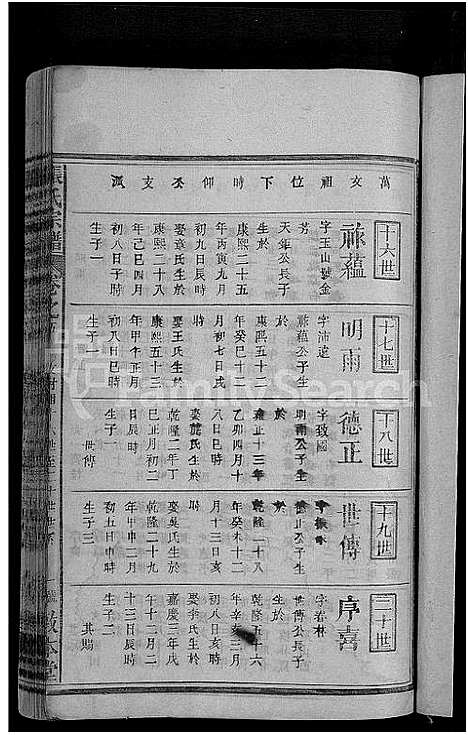 萬文祖位下時仰丕支派
十六世
祿蘊
字玉山號金
芳
天年公長子
生於
康熙二十五
年丙寅九月
初九日辰時
娶章氏生於
康熙二十八
年己巳四月
初八日子時
生子一
十七世
明雨
字沛遠
祿蘊公子生
於
康熙五十二
年癸巳十二
月初七日戌
時
娶王氏生於
康熙五十三
年甲午正月
初八日巳時
生子一
十八世
德正
字致國
明雨公子生
於
雍正十三年
乙卯四月十
八日巳時
娶龍氏生於
乾隆二年丁
巳正月初二
日辰時
生子一
世傳
十九世
世傳
德正公子生
於
乾隆二十八
年癸未十二
月十三日亥
時
娶吳氏生於
乾隆二十九
年甲申二月
初五日申時
生子三
二十世
序喜
字春林
世傳公長子
生於
乾隆五十六
年辛亥三月
初八日亥時
娶李氏生於
嘉慶三年戊
午十二月二
十三日辰時
生子二
其賜
張氏宗譜
FamilySearch